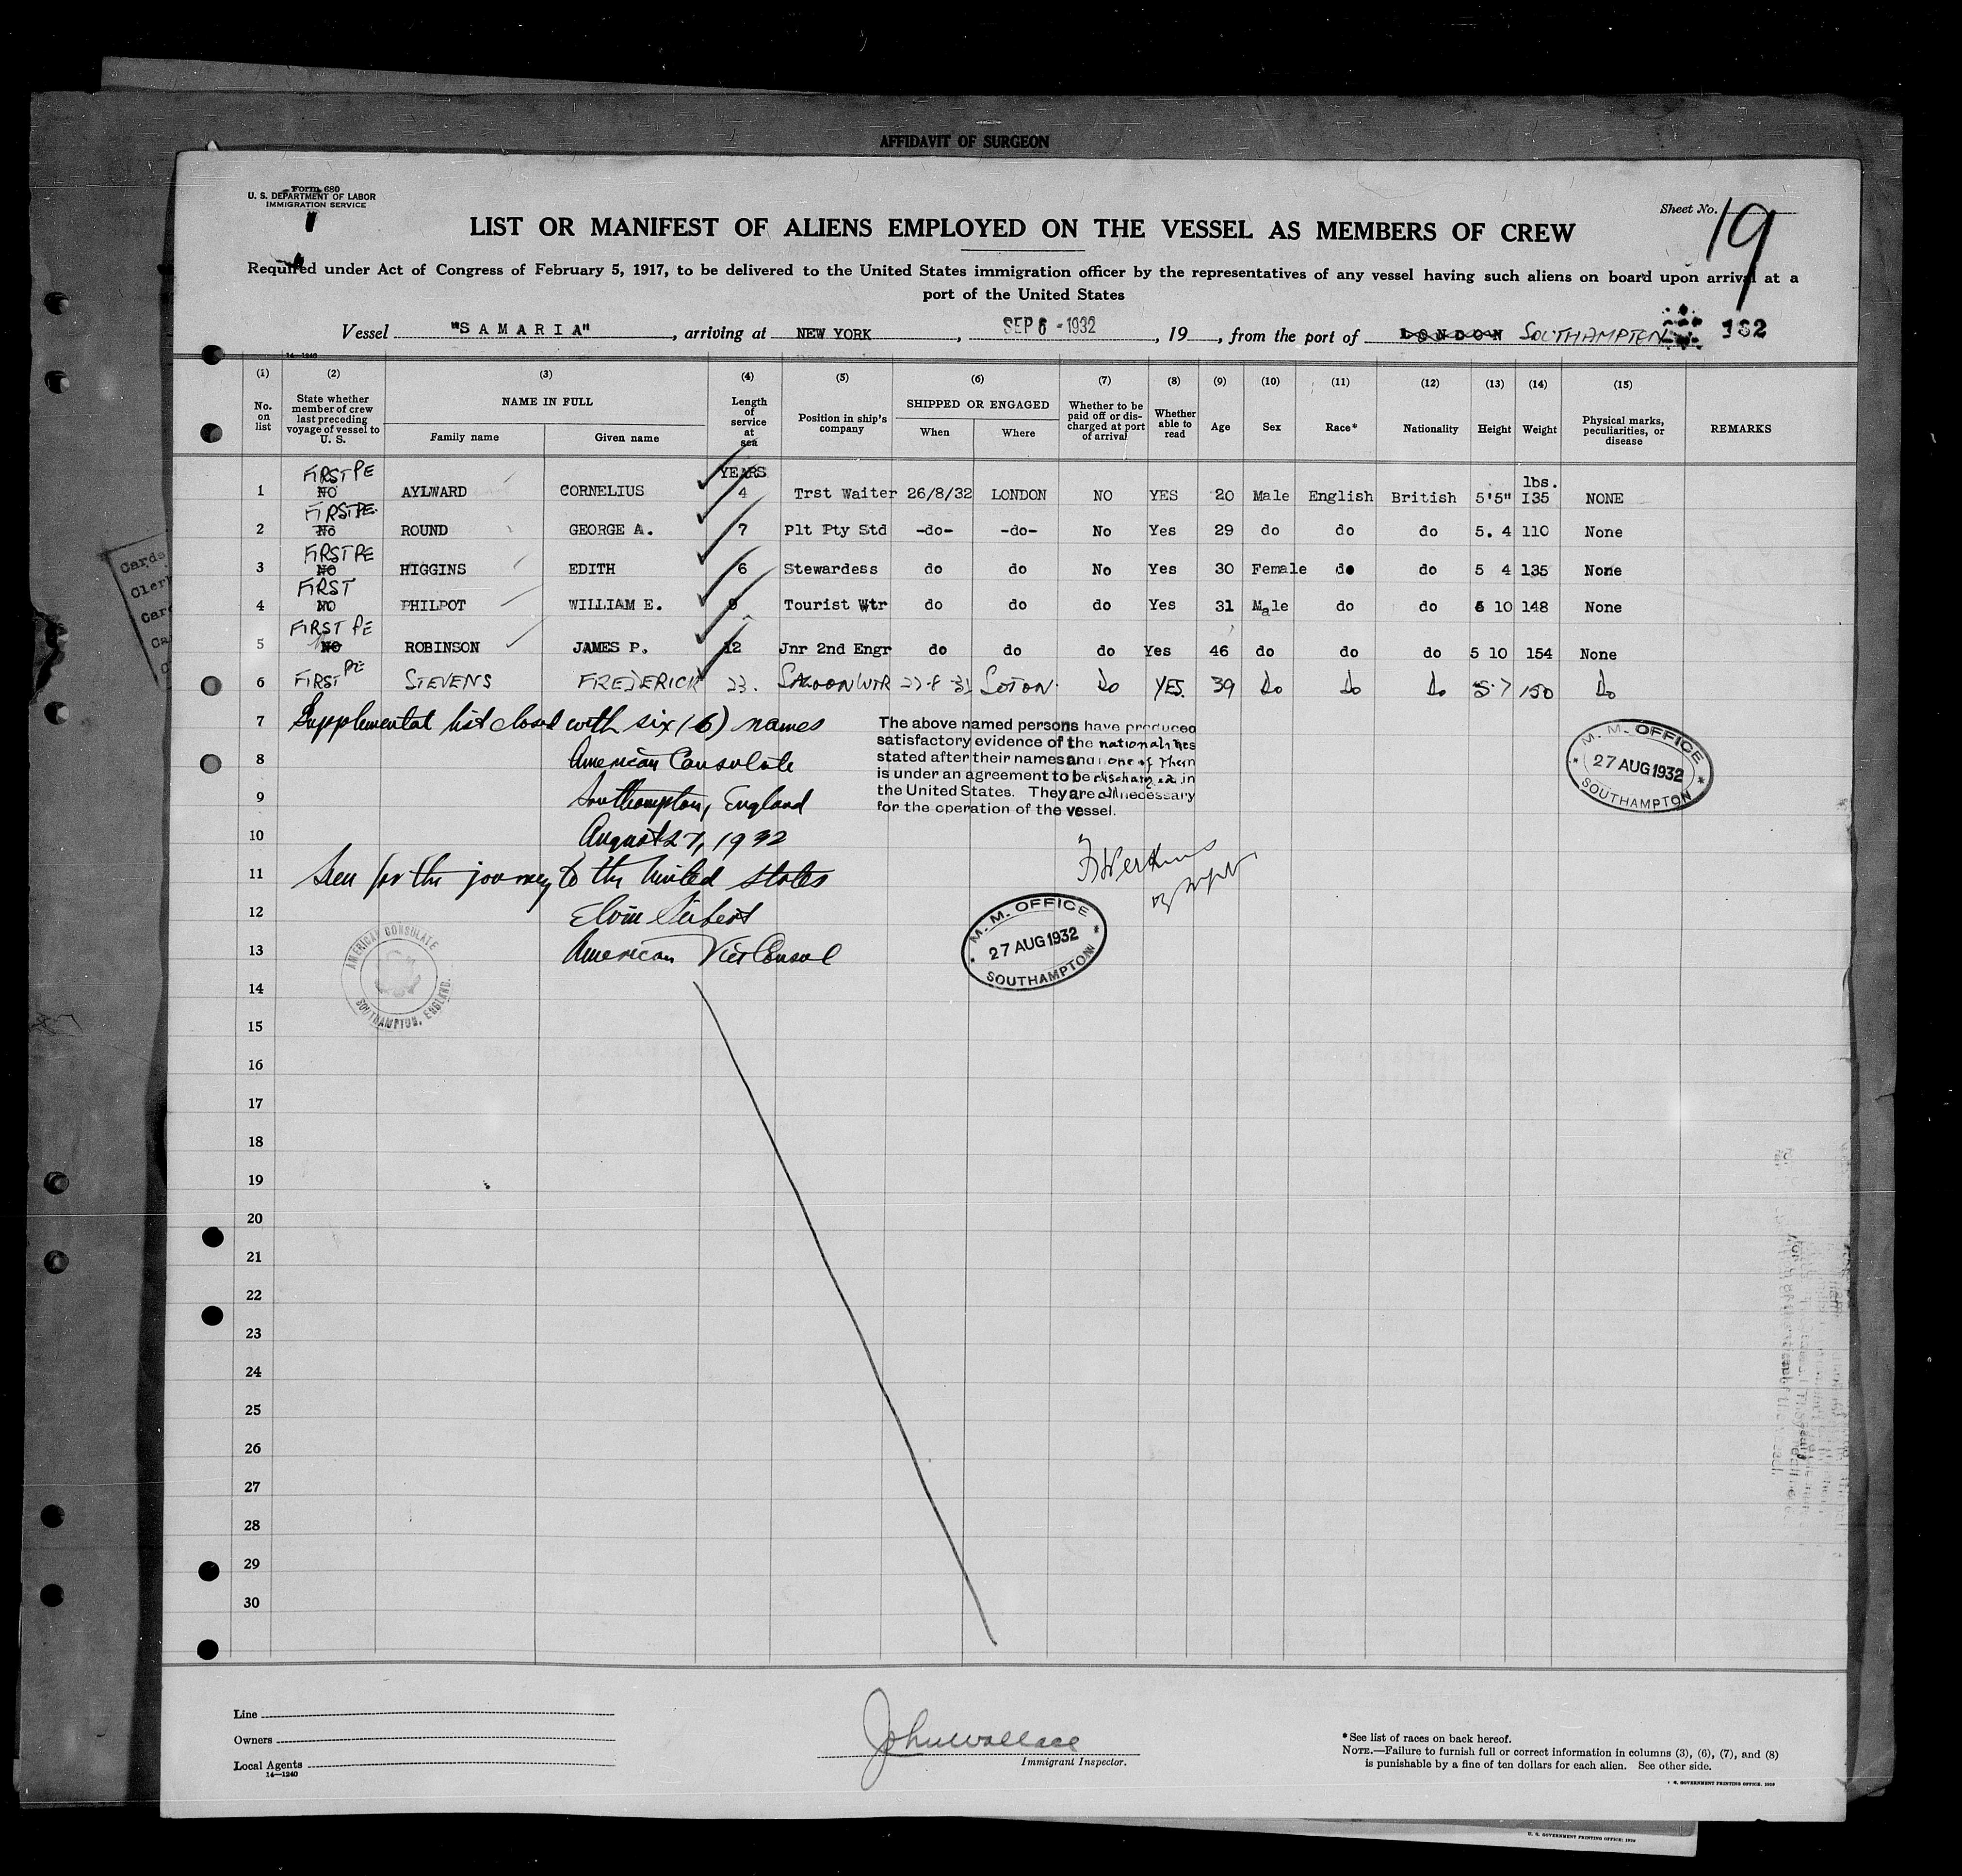 AFFIDAVIT OF SURGEON
Form 680
U. S. DEPARTMENT OF LABOR
IMMIGRATION SERVICE
Sheet No. 19
LIST OR MANIFEST OF ALIENS EMPLOYED ON THE VESSEL AS MEMBERS OF CREW
Required under Act of Congress of February 5, 1917, to be delivered to the United States immigration officer by the representatives of any vessel having such aliens on board upon arrival at a
port of the United States
Vessel "SAMARIA", arriving at NEW YORK, SEP 6 - 1932, 19, from the port of LONDON SOUTHAMPTON 162
14-1240
(1) (2) (3) (4) (5) (6) (7) (8) (9) (10) (11) (12) (13) (14) (15)
No. on list State whether member of crew last preceding voyage of vessel to U. S. NAME IN FULL Family name Given name Length of service at sea Position in ship's company SHIPPED OR ENGAGED When Where Whether to be paid off or discharged at port of arrival Whether able to read Age Sex Race* Nationality Height Weight Physical marks, peculiarities, or disease REMARKS
YEARS lbs.
1 FIRST PE NO AYLWARD CORNELIUS 4 Trst Waiter 26/8/32 LONDON NO YES 20 Male English British 5'5" I35 NONE
2 FIRST PE. No ROUND GEORGE A. 7 Plt Pty Std -do- -do- No Yes 29 do do do 5. 4 110 None
3 FIRST PE NO HIGGINS EDITH 6 Stewardess do do No Yes 30 Female do do 5 4 135 None
4 FIRST NO PHILPOT WILLIAM E. Tourist Wtr do do do Yes 31 Male do do 5 10 148 None
5 FIRST PE NO ROBINSON JAMES P. 12 Jnr 2nd Engr do do do Yes 46 do do do 5 10 154 None
6 FIRST PE STEVENS FREDERICK 23. SALOON WTR S'OTON. Do YES. 39 Do Do Do 5.7 150 Do
7 Supplemental list closed with six (6) names
8 American Consulate
9 Southampton, England
10 August 27, 1932
11 Seen for the journey to the United States
12 Elvin Seibert
13 American Vice Consul
The above named persons have produced
satisfactory evidence of the nationalities
stated after their names and none of them
is under an agreement to be discharged in
the United States. They are all necessary
for the operation of the vessel.
M. M. OFFICE
27 AUG 1932
SOUTHAMPTON
M. M. OFFICE
27 AUG 1932
SOUTHAMPTON
AMERICAN CONSULATE
SOUTHAMPTON, ENGLAND.
14
15
16
17
18
19
20
21
22
23
24
25
26
27
28
29
30
Line
Owners
Local Agents
14-1240
John Wallace
Immigrant Inspector.
* See list of races on back hereof.
NOTE.—Failure to furnish full or correct information in columns (3), (6), (7), and (8)
is punishable by a fine of ten dollars for each alien. See other side.
U. S. GOVERNMENT PRINTING OFFICE: 1929